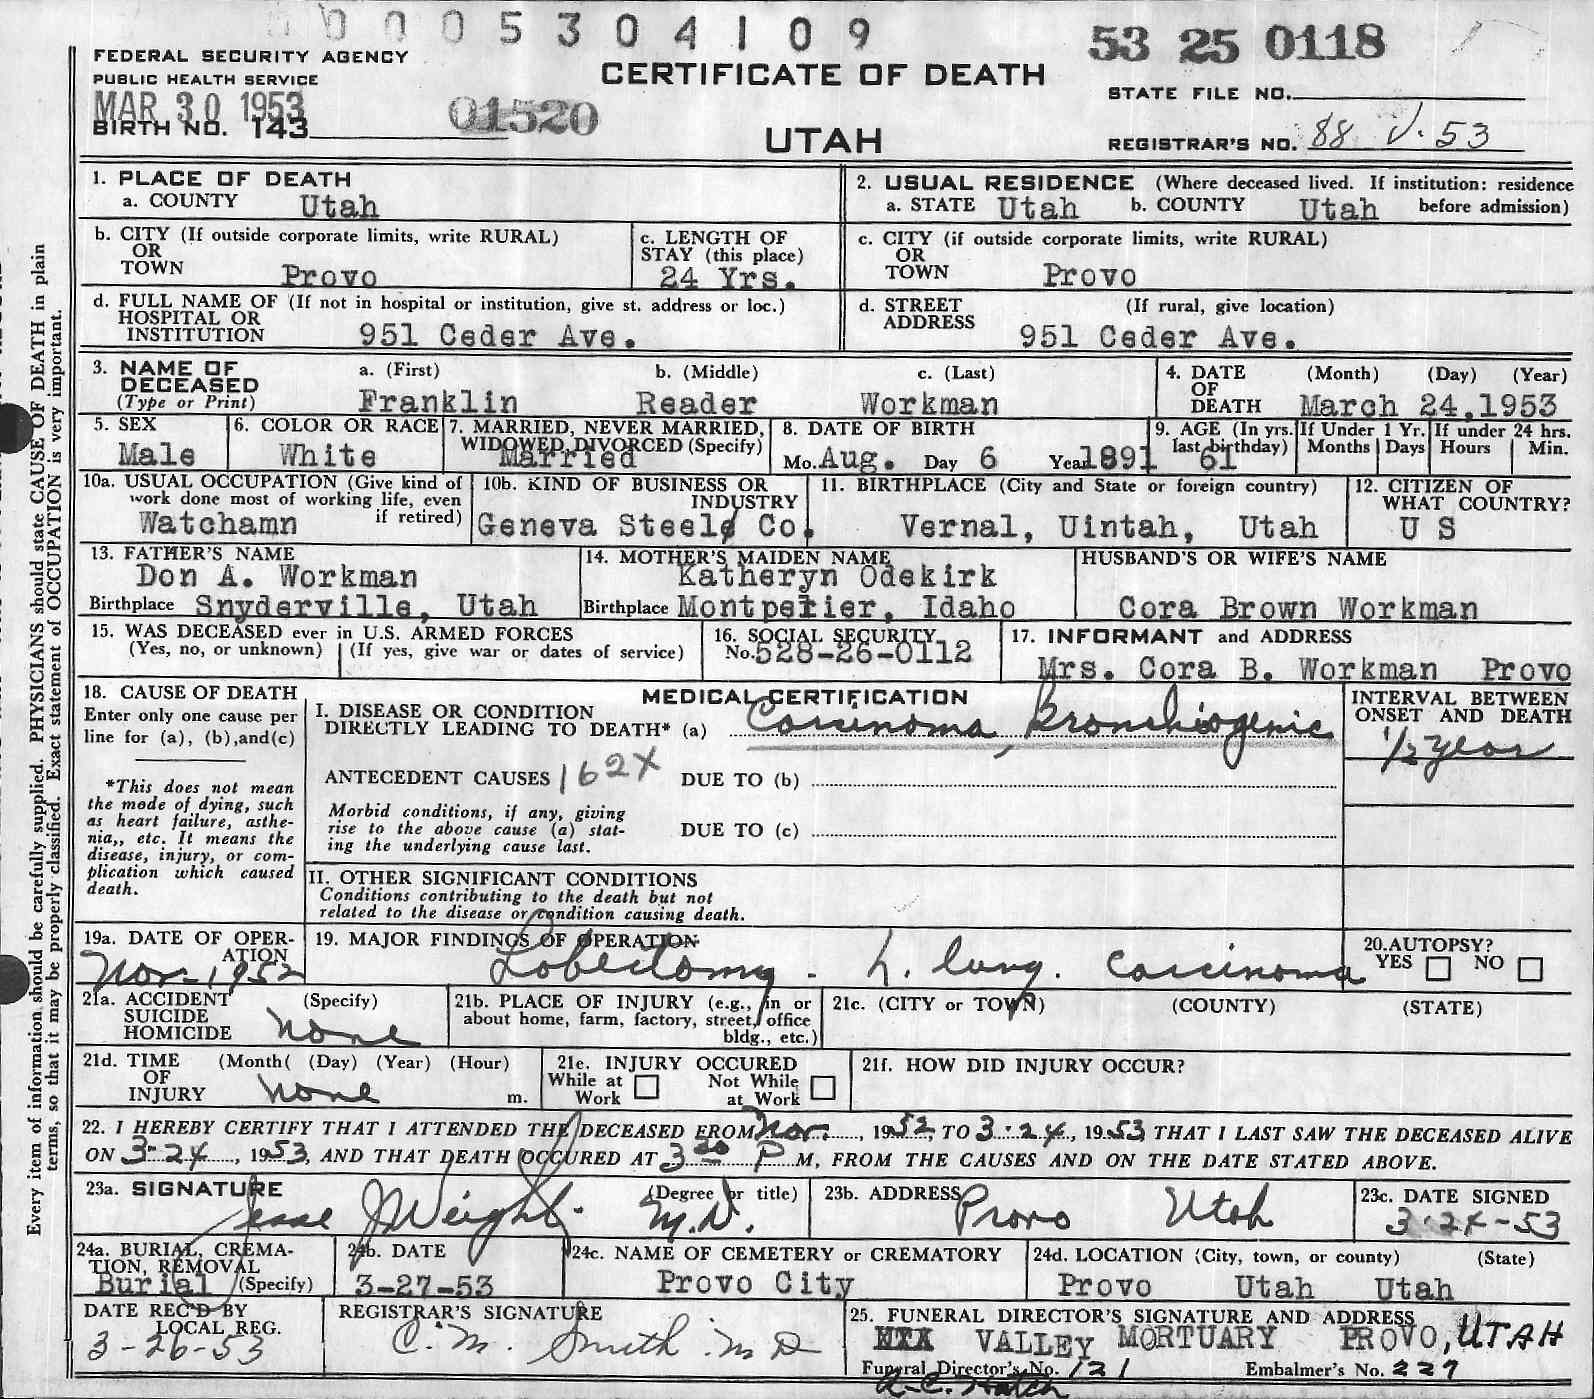 0005304109
53 25 0118
FEDERAL SECURITY AGENCY
PUBLIC HEALTH SERVICE
CERTIFICATE OF DEATH
STATE FILE NO.
MAR 30 1953
BIRTH NO. 143
01520
UTAH
REGISTRAR'S NO. 88 V. 53
Every item of information should be carefully supplied. PHYSICIANS should state CAUSE OF DEATH in plain
terms, so that it may be properly classified. Exact statement of OCCUPATION is very important.
1. PLACE OF DEATH
a. COUNTY Utah
2. USUAL RESIDENCE (Where deceased lived. If institution: residence
a. STATE Utah b. COUNTY Utah before admission)
b. CITY (If outside corporate limits, write RURAL)
OR
TOWN Provo
c. LENGTH OF
STAY (this place)
24 Yrs.
c. CITY (if outside corporate limits, write RURAL)
OR
TOWN Provo
d. FULL NAME OF (If not in hospital or institution, give st. address or loc.)
HOSPITAL OR
INSTITUTION 951 Ceder Ave.
d. STREET (If rural, give location)
ADDRESS
951 Ceder Ave.
3. NAME OF a. (First) b. (Middle) c. (Last)
DECEASED
(Type or Print) Franklin Reader Workman
4. DATE (Month) (Day) (Year)
OF
DEATH March 24,1953
5. SEX
Male
6. COLOR OR RACE
White
7. MARRIED, NEVER MARRIED,
WIDOWED, DIVORCED (Specify)
Married
8. DATE OF BIRTH
Mo. Aug. Day 6 Year 1891
9. AGE (In yrs.
last birthday)
61
If Under 1 Yr.
Months Days
If under 24 hrs.
Hours Min.
10a. USUAL OCCUPATION (Give kind of
work done most of working life, even
if retired)
Watchamn
10b. KIND OF BUSINESS OR
INDUSTRY
Geneva Steel Co.
11. BIRTHPLACE (City and State or foreign country)
Vernal, Uintah, Utah
12. CITIZEN OF
WHAT COUNTRY?
U S
13. FATHER'S NAME
Don A. Workman
Birthplace Snyderville, Utah
14. MOTHER'S MAIDEN NAME
Katheryn Odekirk
Birthplace Montpelier, Idaho
HUSBAND'S OR WIFE'S NAME
Cora Brown Workman
15. WAS DECEASED ever in U.S. ARMED FORCES
(Yes, no, or unknown) (If yes, give war or dates of service)
16. SOCIAL SECURITY
No. 528-26-0112
17. INFORMANT and ADDRESS
Mrs. Cora B. Workman Provo
18. CAUSE OF DEATH
Enter only one cause per
line for (a), (b),and(c)
*This does not mean
the mode of dying, such
as heart failure, asthe-
nia,, etc. It means the
disease, injury, or com-
plication which caused
death.
MEDICAL CERTIFICATION
I. DISEASE OR CONDITION
DIRECTLY LEADING TO DEATH* (a) Carcinoma, Bronchiogenic
ANTECEDENT CAUSES 162X DUE TO (b)
Morbid conditions, if any, giving
rise to the above cause (a) stat-
ing the underlying cause last.
DUE TO (c)
II. OTHER SIGNIFICANT CONDITIONS
Conditions contributing to the death but not
related to the disease or condition causing death.
INTERVAL BETWEEN
ONSET AND DEATH
1/2 year
19a. DATE OF OPER-
ATION
Nov-1952
19. MAJOR FINDINGS OF OPERATION
Lobectomy - L. lung. Carcinoma
20. AUTOPSY?
YES NO
21a. ACCIDENT (Specify)
SUICIDE
HOMICIDE none
21b. PLACE OF INJURY (e.g., in or
about home, farm, factory, street, office
bldg., etc.)
21c. (CITY or TOWN) (COUNTY) (STATE)
21d. TIME (Month( (Day) (Year) (Hour)
OF
INJURY none m.
21e. INJURY OCCURED
While at Work Not While at Work
21f. HOW DID INJURY OCCUR?
22. I HEREBY CERTIFY THAT I ATTENDED THE DECEASED FROM Nov., 1952, TO 3-24, 1953, THAT I LAST SAW THE DECEASED ALIVE
ON 3-24, 1953, AND THAT DEATH OCCURED AT 3 20 P M, FROM THE CAUSES AND ON THE DATE STATED ABOVE.
23a. SIGNATURE (Degree or title)
Jesse J Weight. M.D.
23b. ADDRESS
Provo Utah
23c. DATE SIGNED
3-24-53
24a. BURIAL, CREMA-
TION, REMOVAL
Burial (Specify)
24b. DATE
3-27-53
24c. NAME OF CEMETERY or CREMATORY
Provo City
24d. LOCATION (City, town, or county) (State)
Provo Utah Utah
DATE REC'D BY
LOCAL REG.
3-26-53
REGISTRAR'S SIGNATURE
C. M. Smith MD
25. FUNERAL DIRECTOR'S SIGNATURE AND ADDRESS
VALLEY MORTUARY PROVO, UTAH
Funeral Director's No. 121 Embalmer's No. 227